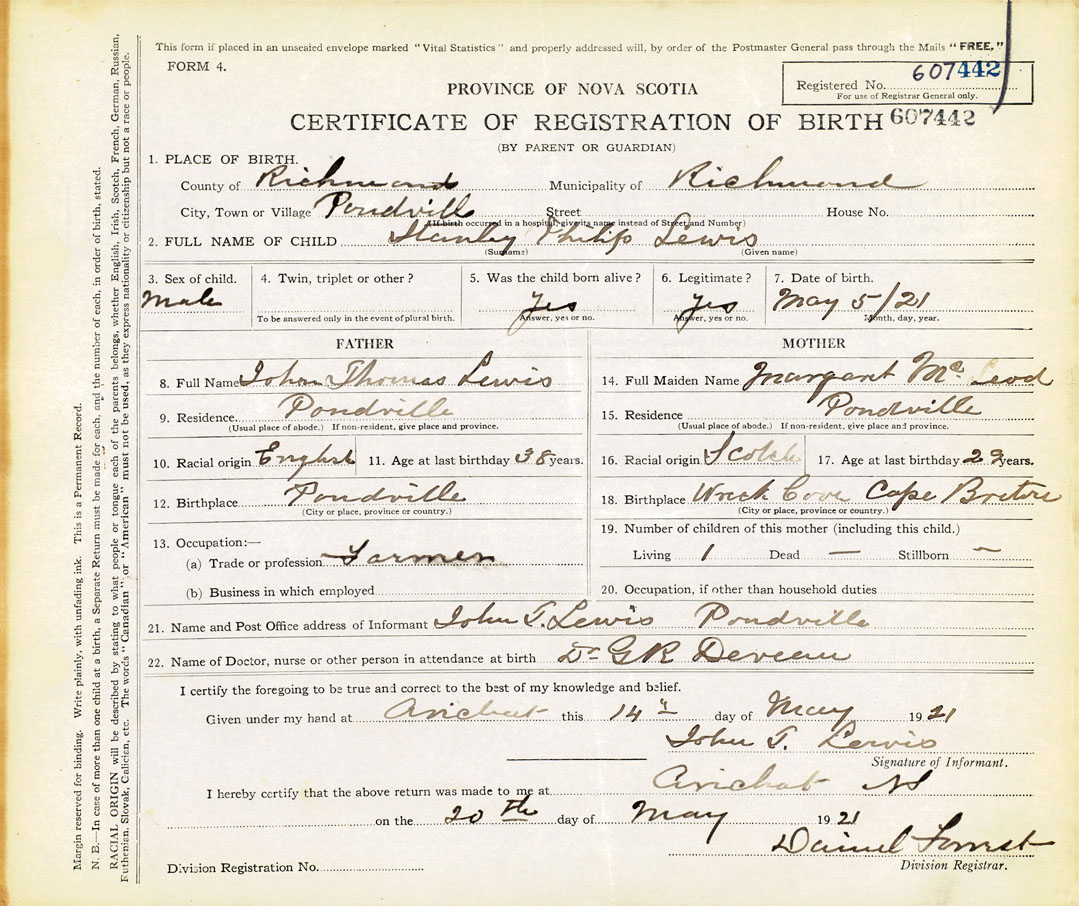 This form if placed in an unsealed envelope marked "Vital Statistics" and properly addressed will, by order of the Postmaster General pass through the Mails "FREE."
FORM 4.
Registered No. 607442
For use of Registrar General only.
PROVINCE OF NOVA SCOTIA
CERTIFICATE OF REGISTRATION OF BIRTH 607442
(BY PARENT OR GUARDIAN)
1. PLACE OF BIRTH.
County of Richmond Municipality of Richmond
City, Town or Village Pondvill Street House No.
(If birth occurred in a hospital, give its name instead of Street and Number)
2. FULL NAME OF CHILD Stanley Philip Lewis
(Surname) (Given name)
3. Sex of child. 4. Twin, triplet or other? 5. Was the child born alive? 6. Legitimate? 7. Date of birth.
Male Yes Yes May 5/21
To be answered only in the event of plural birth. Answer, yes or no. Answer, yes or no. Month, day, year.
FATHER
8. Full Name John Thomas Lewis
9. Residence Pondville
(Usual place of abode.) If non-resident, give place and province.
10. Racial origin English 11. Age at last birthday 38 years.
12. Birthplace Pondville
(City or place, province or country.)
13. Occupation:—
(a) Trade or profession Farmer
(b) Business in which employed
MOTHER
14. Full Maiden Name Margaret Mc Leod
15. Residence Pondville
(Usual place of abode.) If non-resident, give place and province.
16. Racial origin Scotch 17. Age at last birthday years.
18. Birthplace Wreck Cove Cape Breton
(City or place, province or country.)
19. Number of children of this mother (including this child.)
Living 1 Dead — Stillborn —
20. Occupation, if other than household duties
21. Name and Post Office address of Informant John T. Lewis Pondville
22. Name of Doctor, nurse or other person in attendance at birth Dr G R Deveau
I certify the foregoing to be true and correct to the best of my knowledge and belief.
Given under my hand at Arichat this 14th day of May 1921
John T. Lewis
Signature of Informant.
I hereby certify that the above return was made to me at Arichat NS
on the 20th day of May 1921
Daniel
Division Registrar.
Division Registration No.
Margin reserved for binding. Write plainly, with unfading ink. This is a Permanent Record.
N. B.—In case of more than one child at a birth, a Separate Return must be made for each, and the number of each, in order of birth, stated.
RACIAL ORIGIN will be described by stating to what people or tongue each of the parents belongs, whether English, Irish, Scotch, French, German, Russian,
Ruthenian, Slovak, Galician, etc. The words "Canadian" or "American" must not be used, as they express nationality or citizenship but not a race or people.